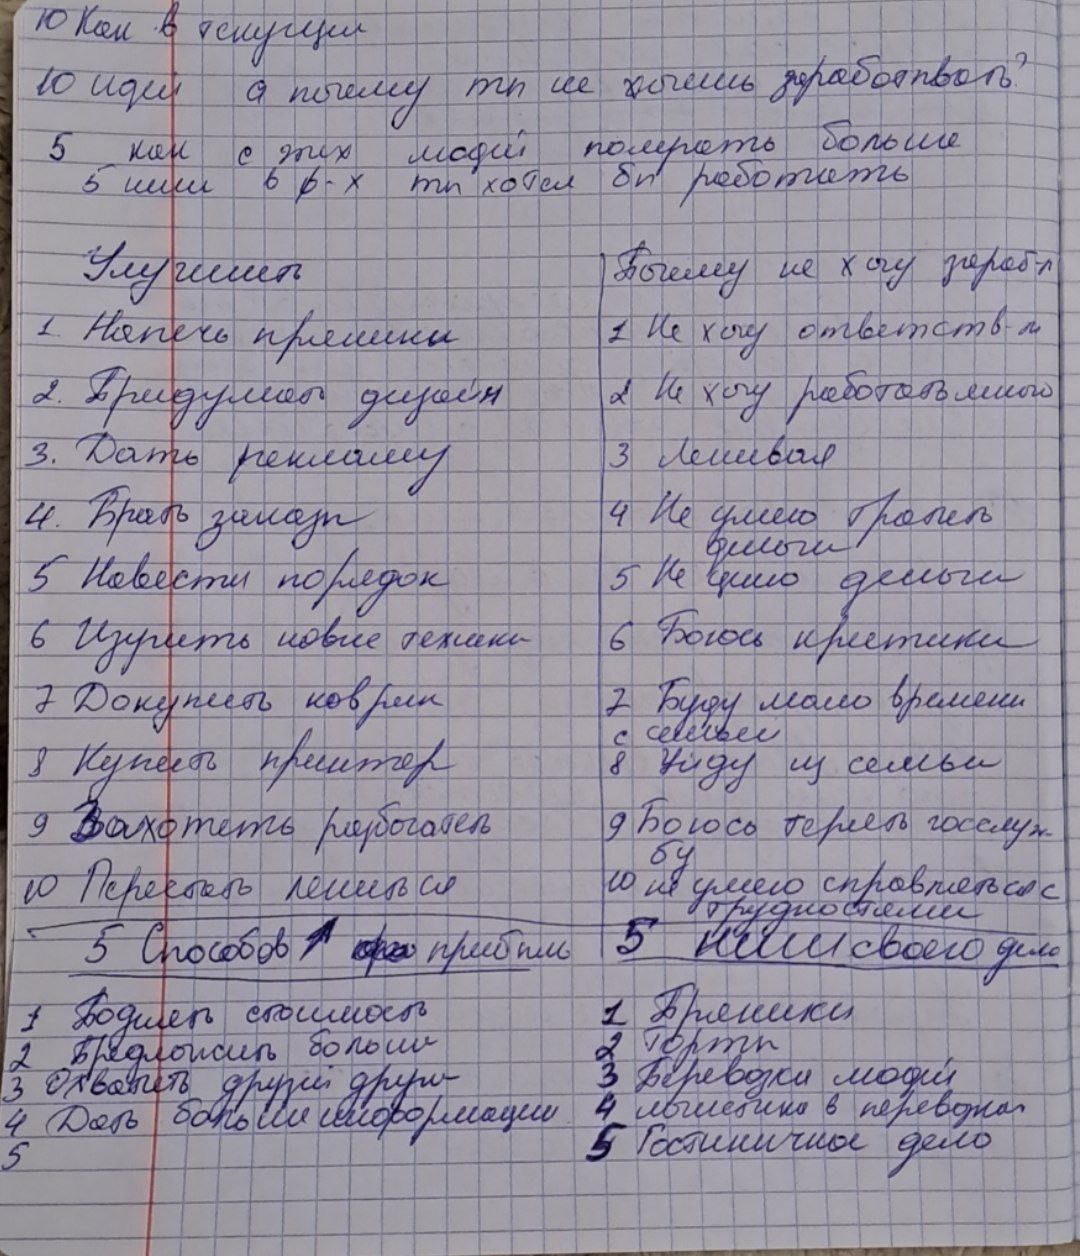 10 Как в текущем
10 идей а почему ты не хочешь зарабатывать?
5 как с этих людей получать больше
5 ниш в к-х ты хотел бы работать
Улучшить
1. Напечь пряники
2. Придумать дизайн
3. Дать рекламу
4. Брать заказы
5 Навести порядок
6 Изучить новые техники
7 Докупить коврик
8 Купить принтер
9 Захотеть разбогатеть
10 Перестать лениться
Почему не хочу зараб-ть
1 Не хочу ответств-ти
2 Не хочу работать много
3 Ленивая
4 Не умею тратить
деньги
5 Не ценю деньги
6 Боюсь критики
7 Буду мало времени
с семьей
8 Уйду из семьи
9 Боюсь терять госслуж-
бу
10 не умею справляться с
трудностями
5 Способов ↑ прибыль
1 Поднять стоимость
2 Предложить больше
3 Охватить другой
4 Дать больше информации
5
5 ниш своего дело
1 Пряники
2 Торты
3 Перевозки людей
4 логистика в перевозках
5 Гостиничное дело